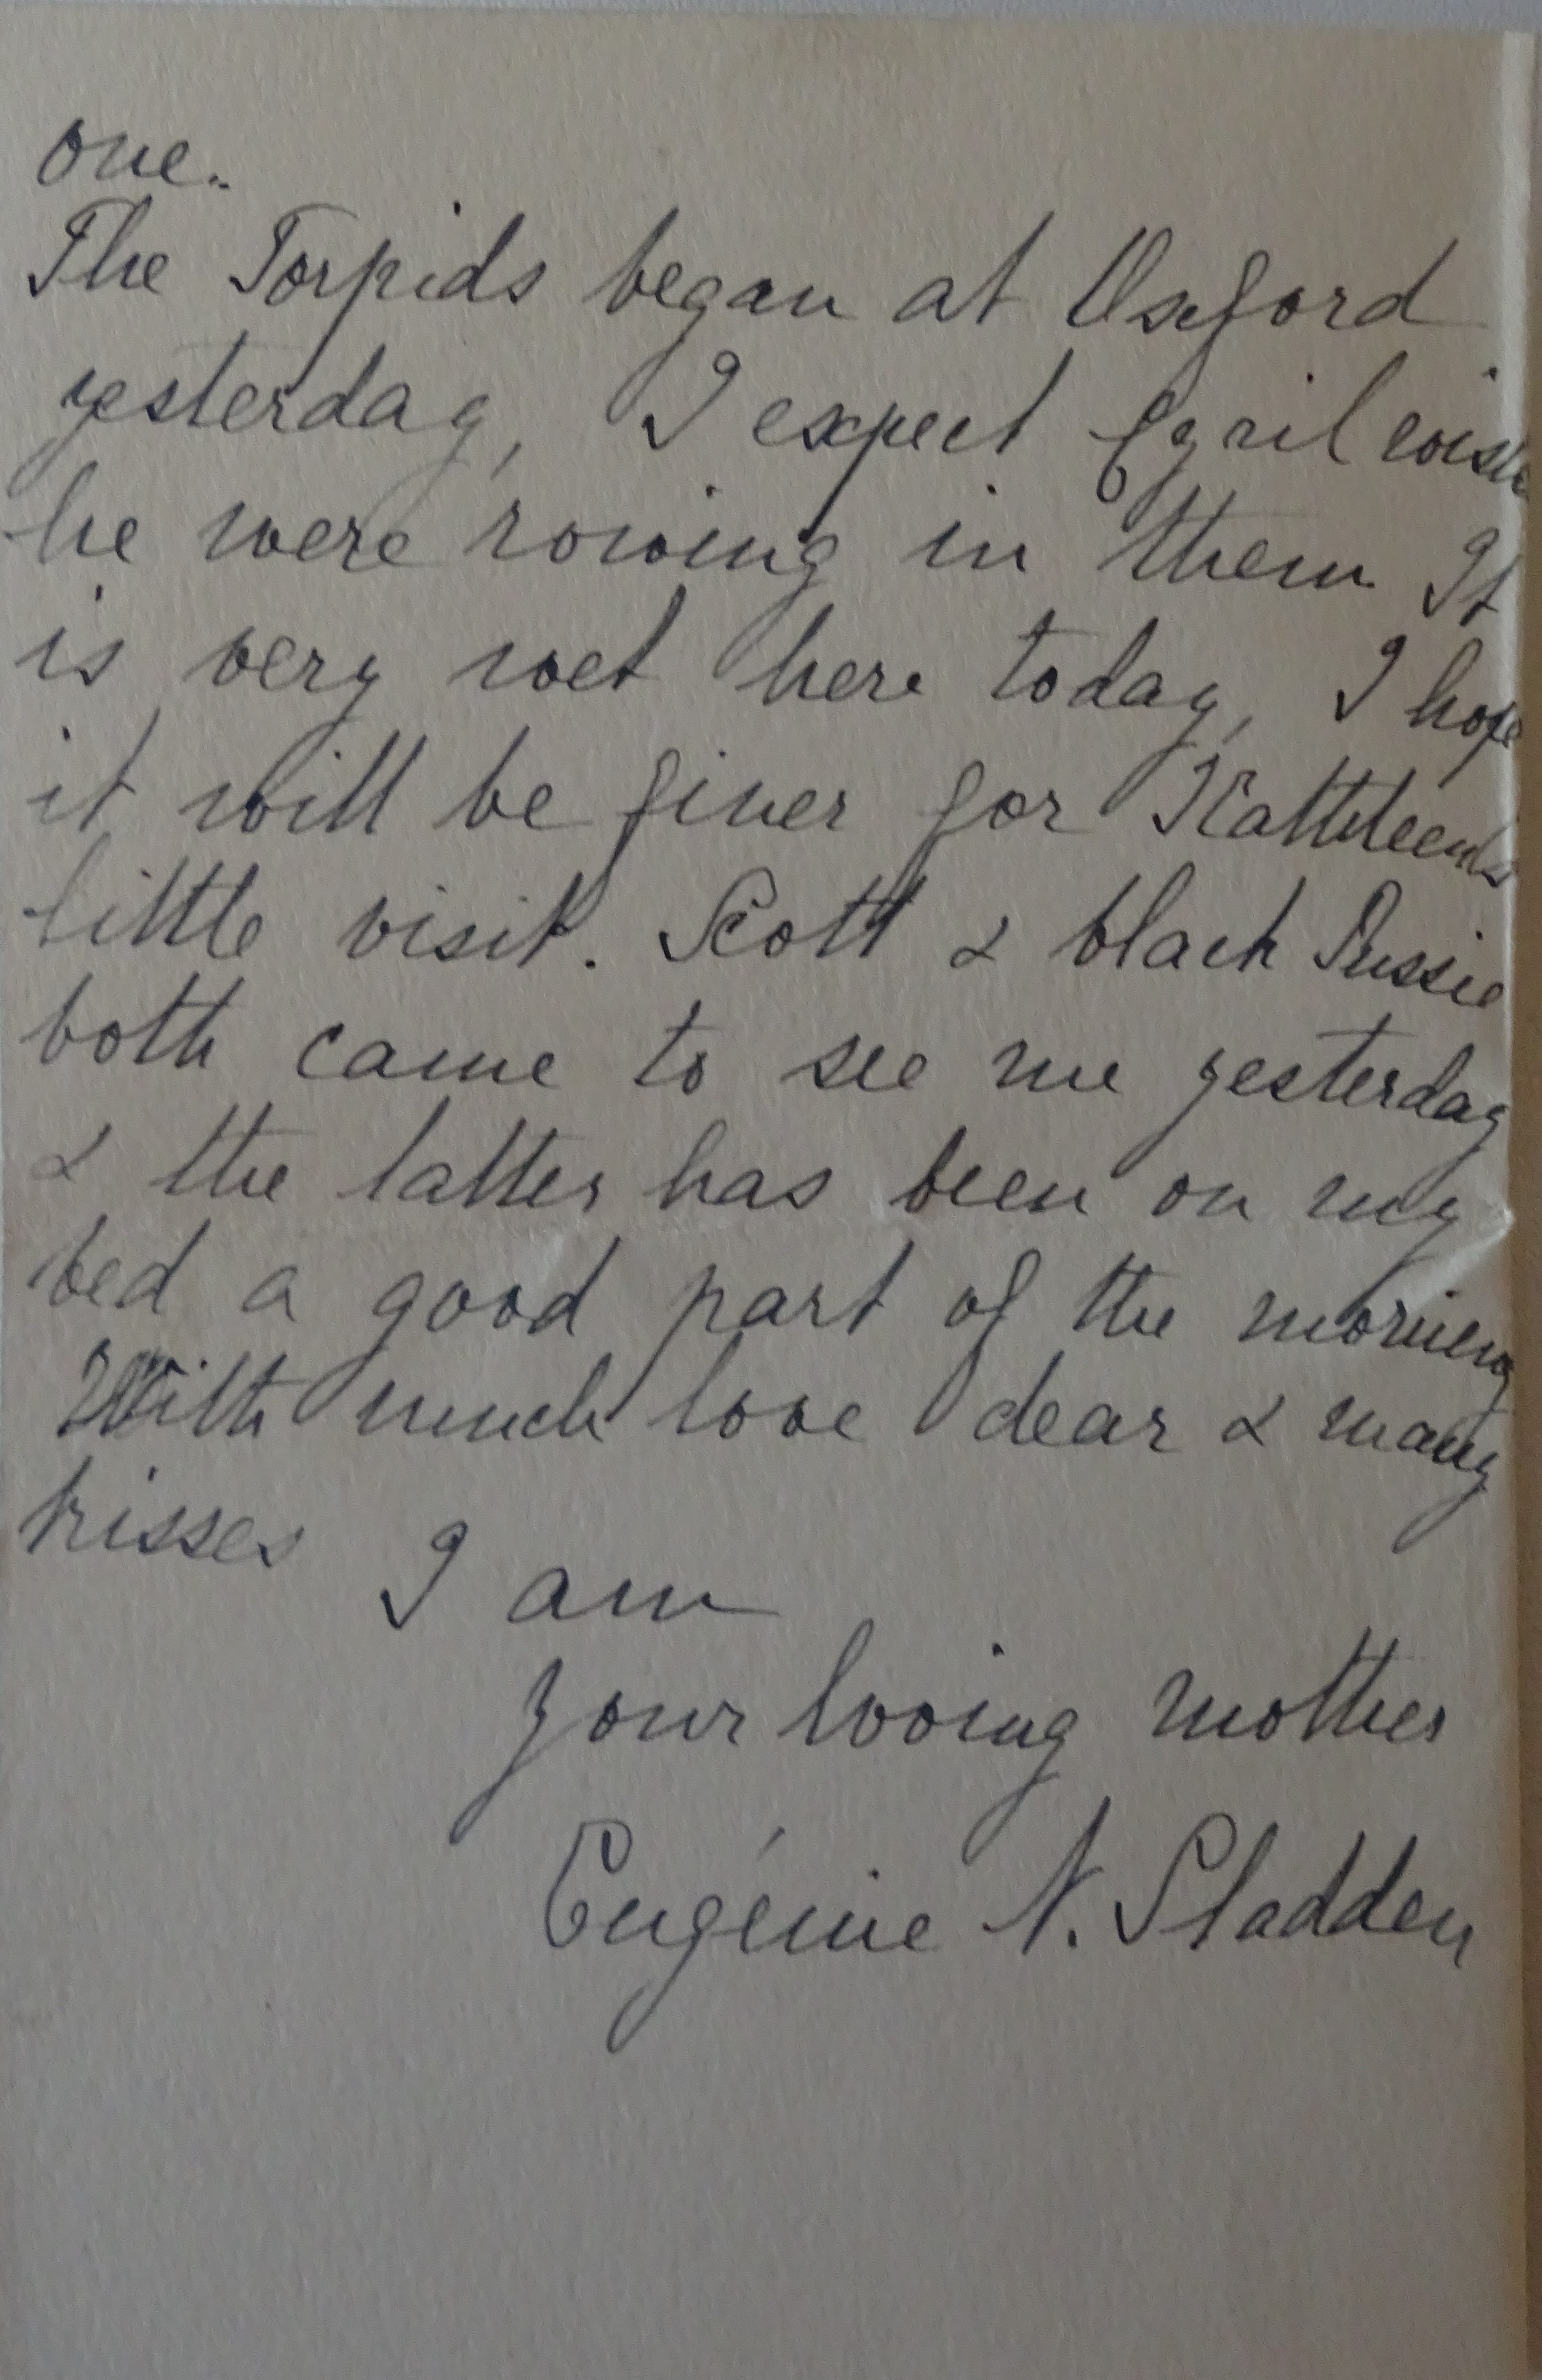 one.
The Torpids began at Oxford
yesterday, I expect Cyril wishes
he were rowing in them. It
is very wet here today, I hope
it will be finer for Kathleen's
little visit. Scott & black Pussie
both came to see me yesterday
& the latter has been on my
bed a good part of the morning
With much love dear & many
kisses I am
your loving mother
Eugénie N. Sladden